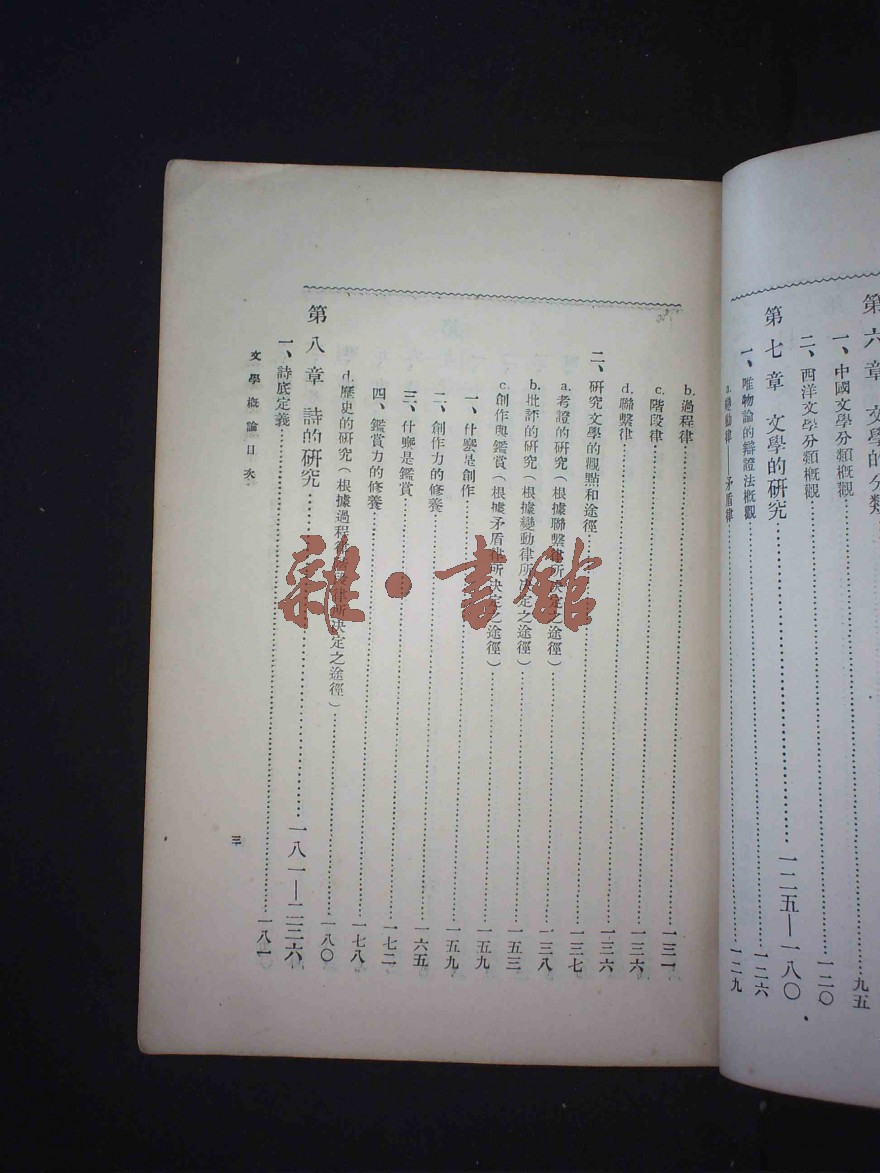 第六章 文學的分類
一、中國文學分類概觀……九五
二、西洋文學分類概觀……一二〇
第七章 文學的研究……一二五—一八〇
一、唯物論的辯證法概觀……一二六
a.變動律——矛盾律……一二九
b.過程律……一三一
c.階段律……一三六
d.聯繫律……一三六
二、研究文學的觀點和途徑……一三七
a.考證的研究(根據聯繫律所決定之途徑)……一三八
b.批評的研究(根據變動律所決定之途徑)……一五三
c.創作與鑑賞(根據矛盾律所決定之途徑)……一五九
一、什麼是創作……一五九
二、創作力的修養……一六五
三、什麼是鑑賞……一七二
四、鑑賞力的修養……一七八
d.歷史的研究(根據過程律階段律所決定之途徑)……一八〇
第八章 詩的研究……一八一—二二六
一、詩底定義……一八一
文學概論目次
三
雜·書館